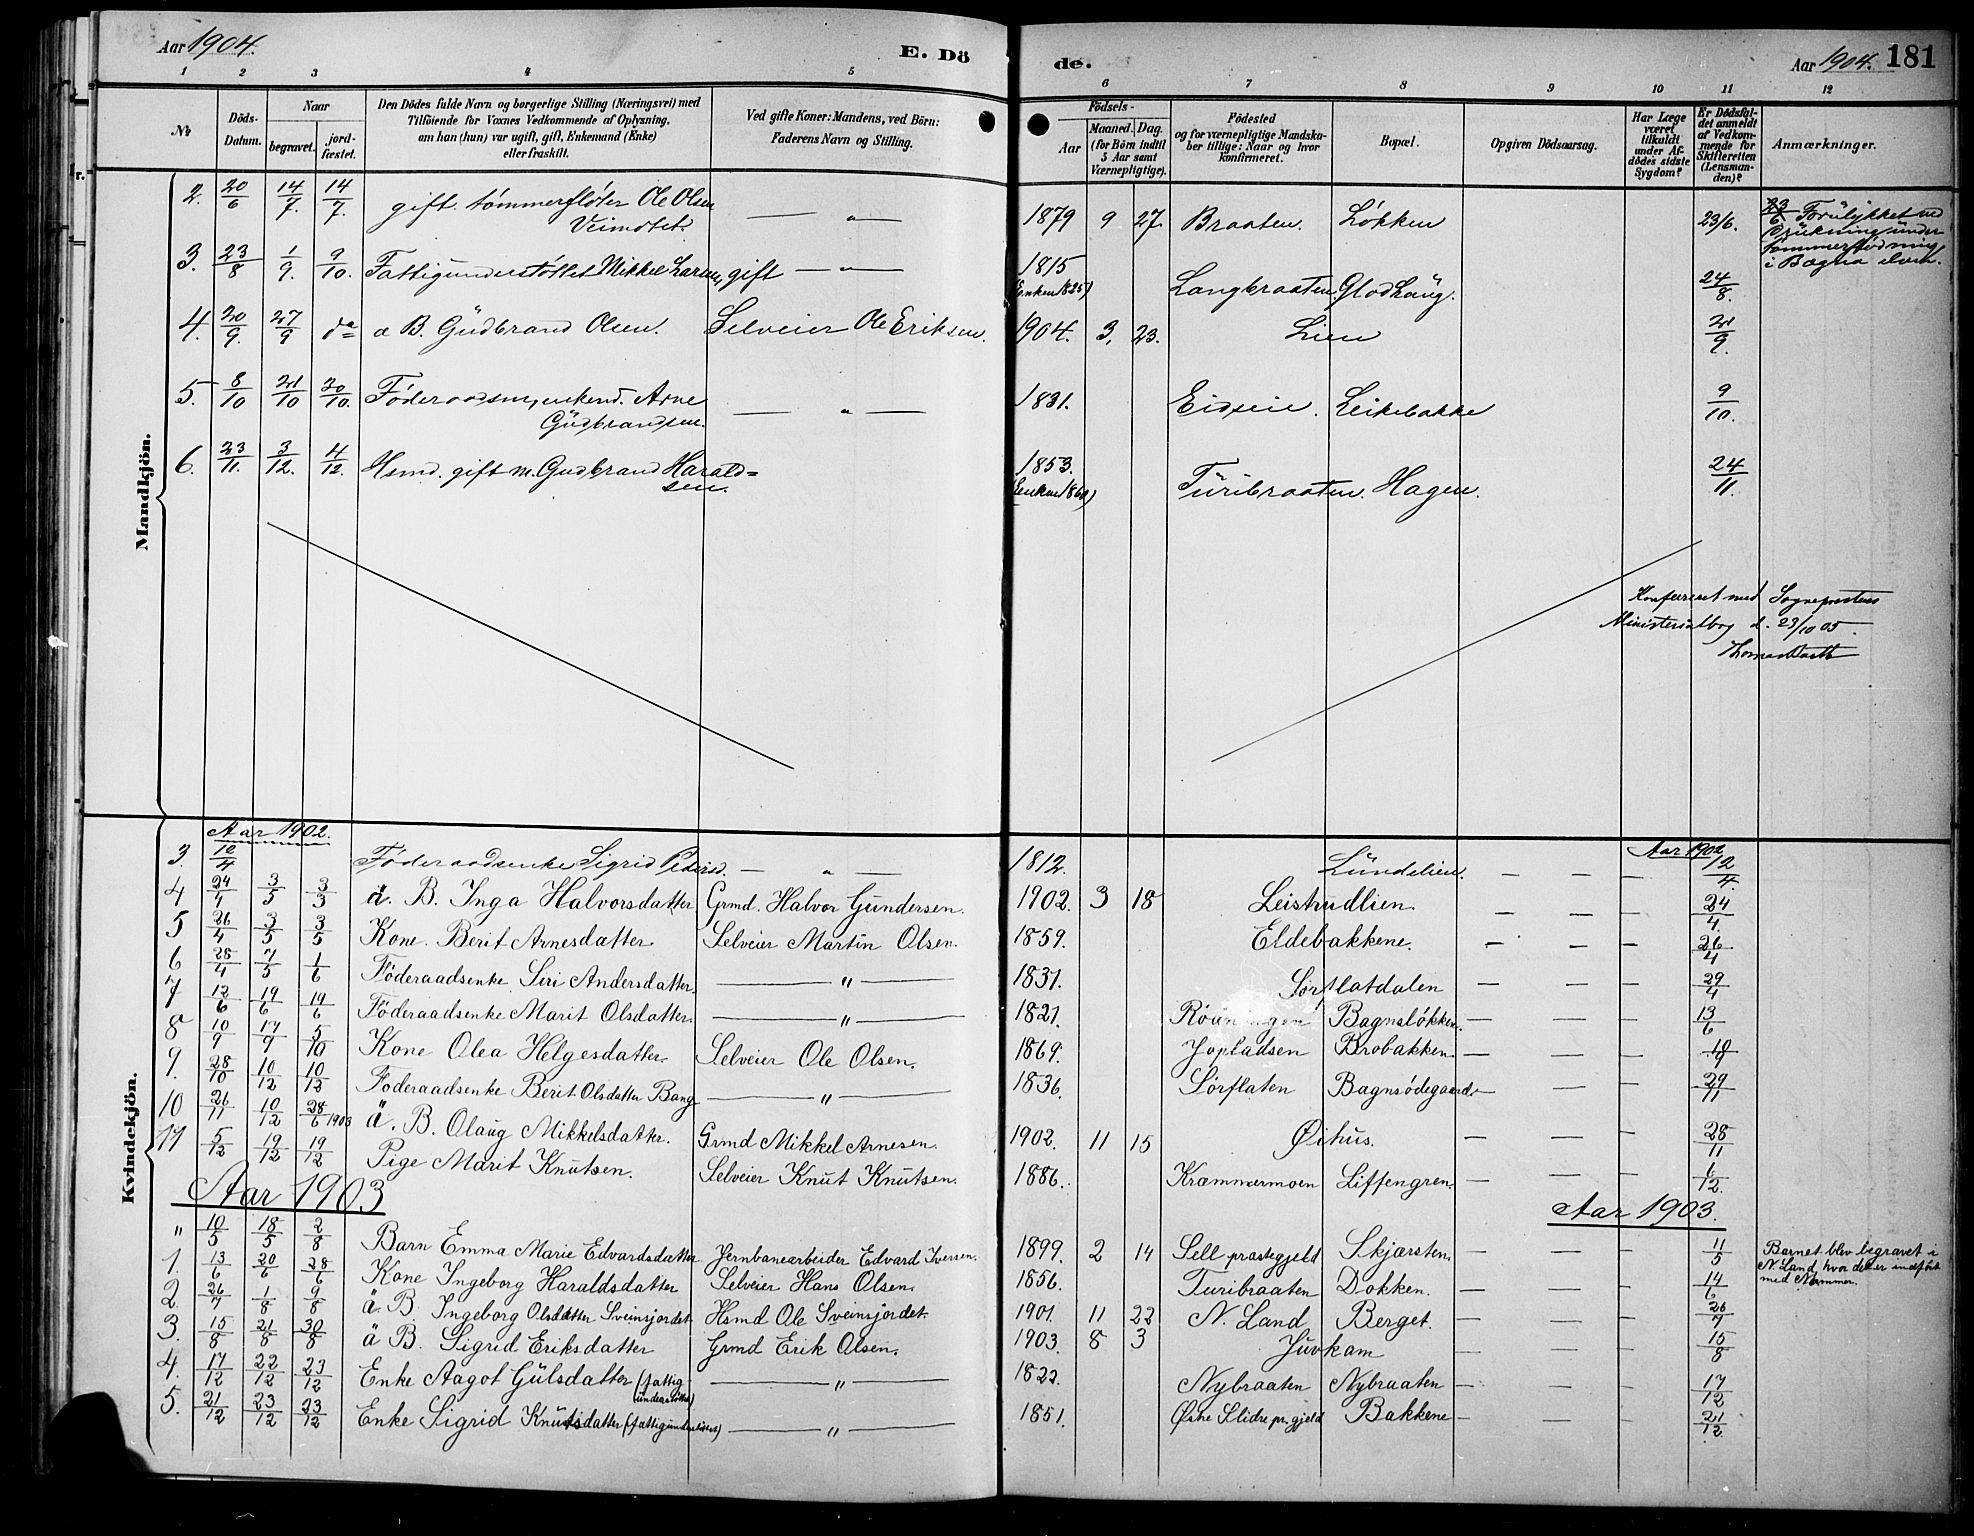 Aar 1904.
E. Dö
de.
Aar 1904. 181
1 2 3 4 5 6 7 8 9 10 11 12
No
Döds-Datum.
Naar
begravet.
jord-fæstet.
Den Dödes fulde Navn og borgerlige Stilling (Næringsvei) med
Tilföiende for Voxnes Vedkommende af Oplysning,
om han (hun) var ugift, gift, Enkemand (Enke)
eller fraskilt.
Ved gifte Koner: Mandens, ved Börn:
Faderens Navn og Stilling.
Födsels-
Aar
Maaned. Dag.
(for Börn indtil
5 Aar samt
Værnepligtige).
Födested
og for værnepligtige Mandska-
ber tillige: Naar og hvor
konfirmeret.
Bopæl.
Opgiven Dödsaarsag.
Har Læge
været
tilkaldt
under Af-
dödes sidste
Sygdom?
Er Dödsfal-
det anmeldt
af Vedkom-
mende for
Skifteretten
(Lensman-
den)?
Anmærkninger.
Mandkjön.
2. 20/6 14/7. 14/7. gift tømmerfløter Ole Olsen Veimotet. — " — 1879 9 27. Braaten. Løkken 23/6. 23/6 Forulykket ved
Drukning under
tømmerflødning
i Bægna elven.
3. 23/8 1/9. 9/10. Fattigunderstøttet Mikkel Larsen, gift — " — 1815 (Enken 1825) Langbraaten. Gladhaug. 24/8.
4. 20/9. 27/9 do a B. Gudbrand Olsen. Selveier Ole Eriksen. 1904. 3. 23. Lien 21/9.
5. 8/10 21/10 30/10. Føderaadsm, enkem. Arne Gudbrandsen. — " — 1831. Eidseie. Leikebakke 9/10.
6. 23/11. 3/12. 4/12. Hsmd. gift m. Gudbrand Harald=
sen. 1853. (Enken 1860) Turibraaten. Hagen. 24/11.
Konfereret med Sogneprestens
Ministerialbog d. 23/10 05.
Thomas Barth
Kvindekjön.
Aar 1902. Aar 1902
3. 12/4 Føderaadsenke Sigrid Pedersd. — " — 1812. Lundelien. — — — 12/4.
4 24/4 3/5 3/3 ä. B. Inga Halvorsdatter Grmd. Halvor Gundersen. 1902. 3 18 Leistrudlien. — — — 24/4
5 26/4 3/5 3/5 Kone. Berit Arnesdatter Selveier Martin Olsen. 1859. Eldebakkene. — — — 26/4
6 28/4 7/5 1/6 Föderaadsenke Siri Andersdatter. — " — 1831. Sørflatdalen — — — 29/4
7 12/6 19/6 19/6 Föderaadsenke Marit Olsdatter. — " — 1821. Bagnsløkken. — — — 13/6
8 10/9 17/9 5/10 Kone Olea Helgesdatter. Selveier Ole Olsen. 1869. Joplassen Brobakken — — —
9. 28/10 10/12 10/12 Foderaadsenke Berit Olsdatter Bang — " — 1836. Sørflaten Bagnsödegaard — — — 29/11
10 26/11 10/12 28/6 1903 ä. B. Olaug Mikkelsdatter. Grmd Mikkel Arnesen. 1902. 11 15 Øihus. — — — 28/11
11 5/12 19/12 19/12 Pige Marit Knutsen. Selveier Knut Knutsen. 1886. Krammermoen Liffengren. — — — 6/12.
Aar 1903 Aar 1903.
" 10/5 18/5 2/8 Barn Emma Marie Edvardsdatter Jernbanearbeider Edvard Iversen. 1899. 2 14 Sell prastegjeld Skjærsten. — — — 11/5 Barnet blev begravet i
N. Land, hvor det er indført
med Nummer.
1. 13/6 20/6 28/6 Kone Ingeborg Haraldsdatter Selveier Hans Olsen. 1856. Turibraaten Dokken. — — — 14/6
2. 26/7 1/8 9/8 ä. B. Ingeborg Olsdatter Sveinsjordet Hsmd Ole Sveinsjordet. 1901. 11 22 N. Land Berget. — — — 28/7
3. 15/8 21/8 30/8 ä B. Sigrid Eriksdatter Grmd Erik Olsen. 1903. 8 3 Juvkam — — — 15/8
4. 17/12 22/12 23/12 Enke Aagot Gulsdatter (fattig-
understøttet) — " — 1822. Nybraaten Nybraaten — — — 17/12
5. 21/12 23/12 23/12 Enke Sigrid Knutsdatter (fattigunderstøttet) — " — 1851. Østre Slidre pr.gjeld Bakkene — — — 21/12.